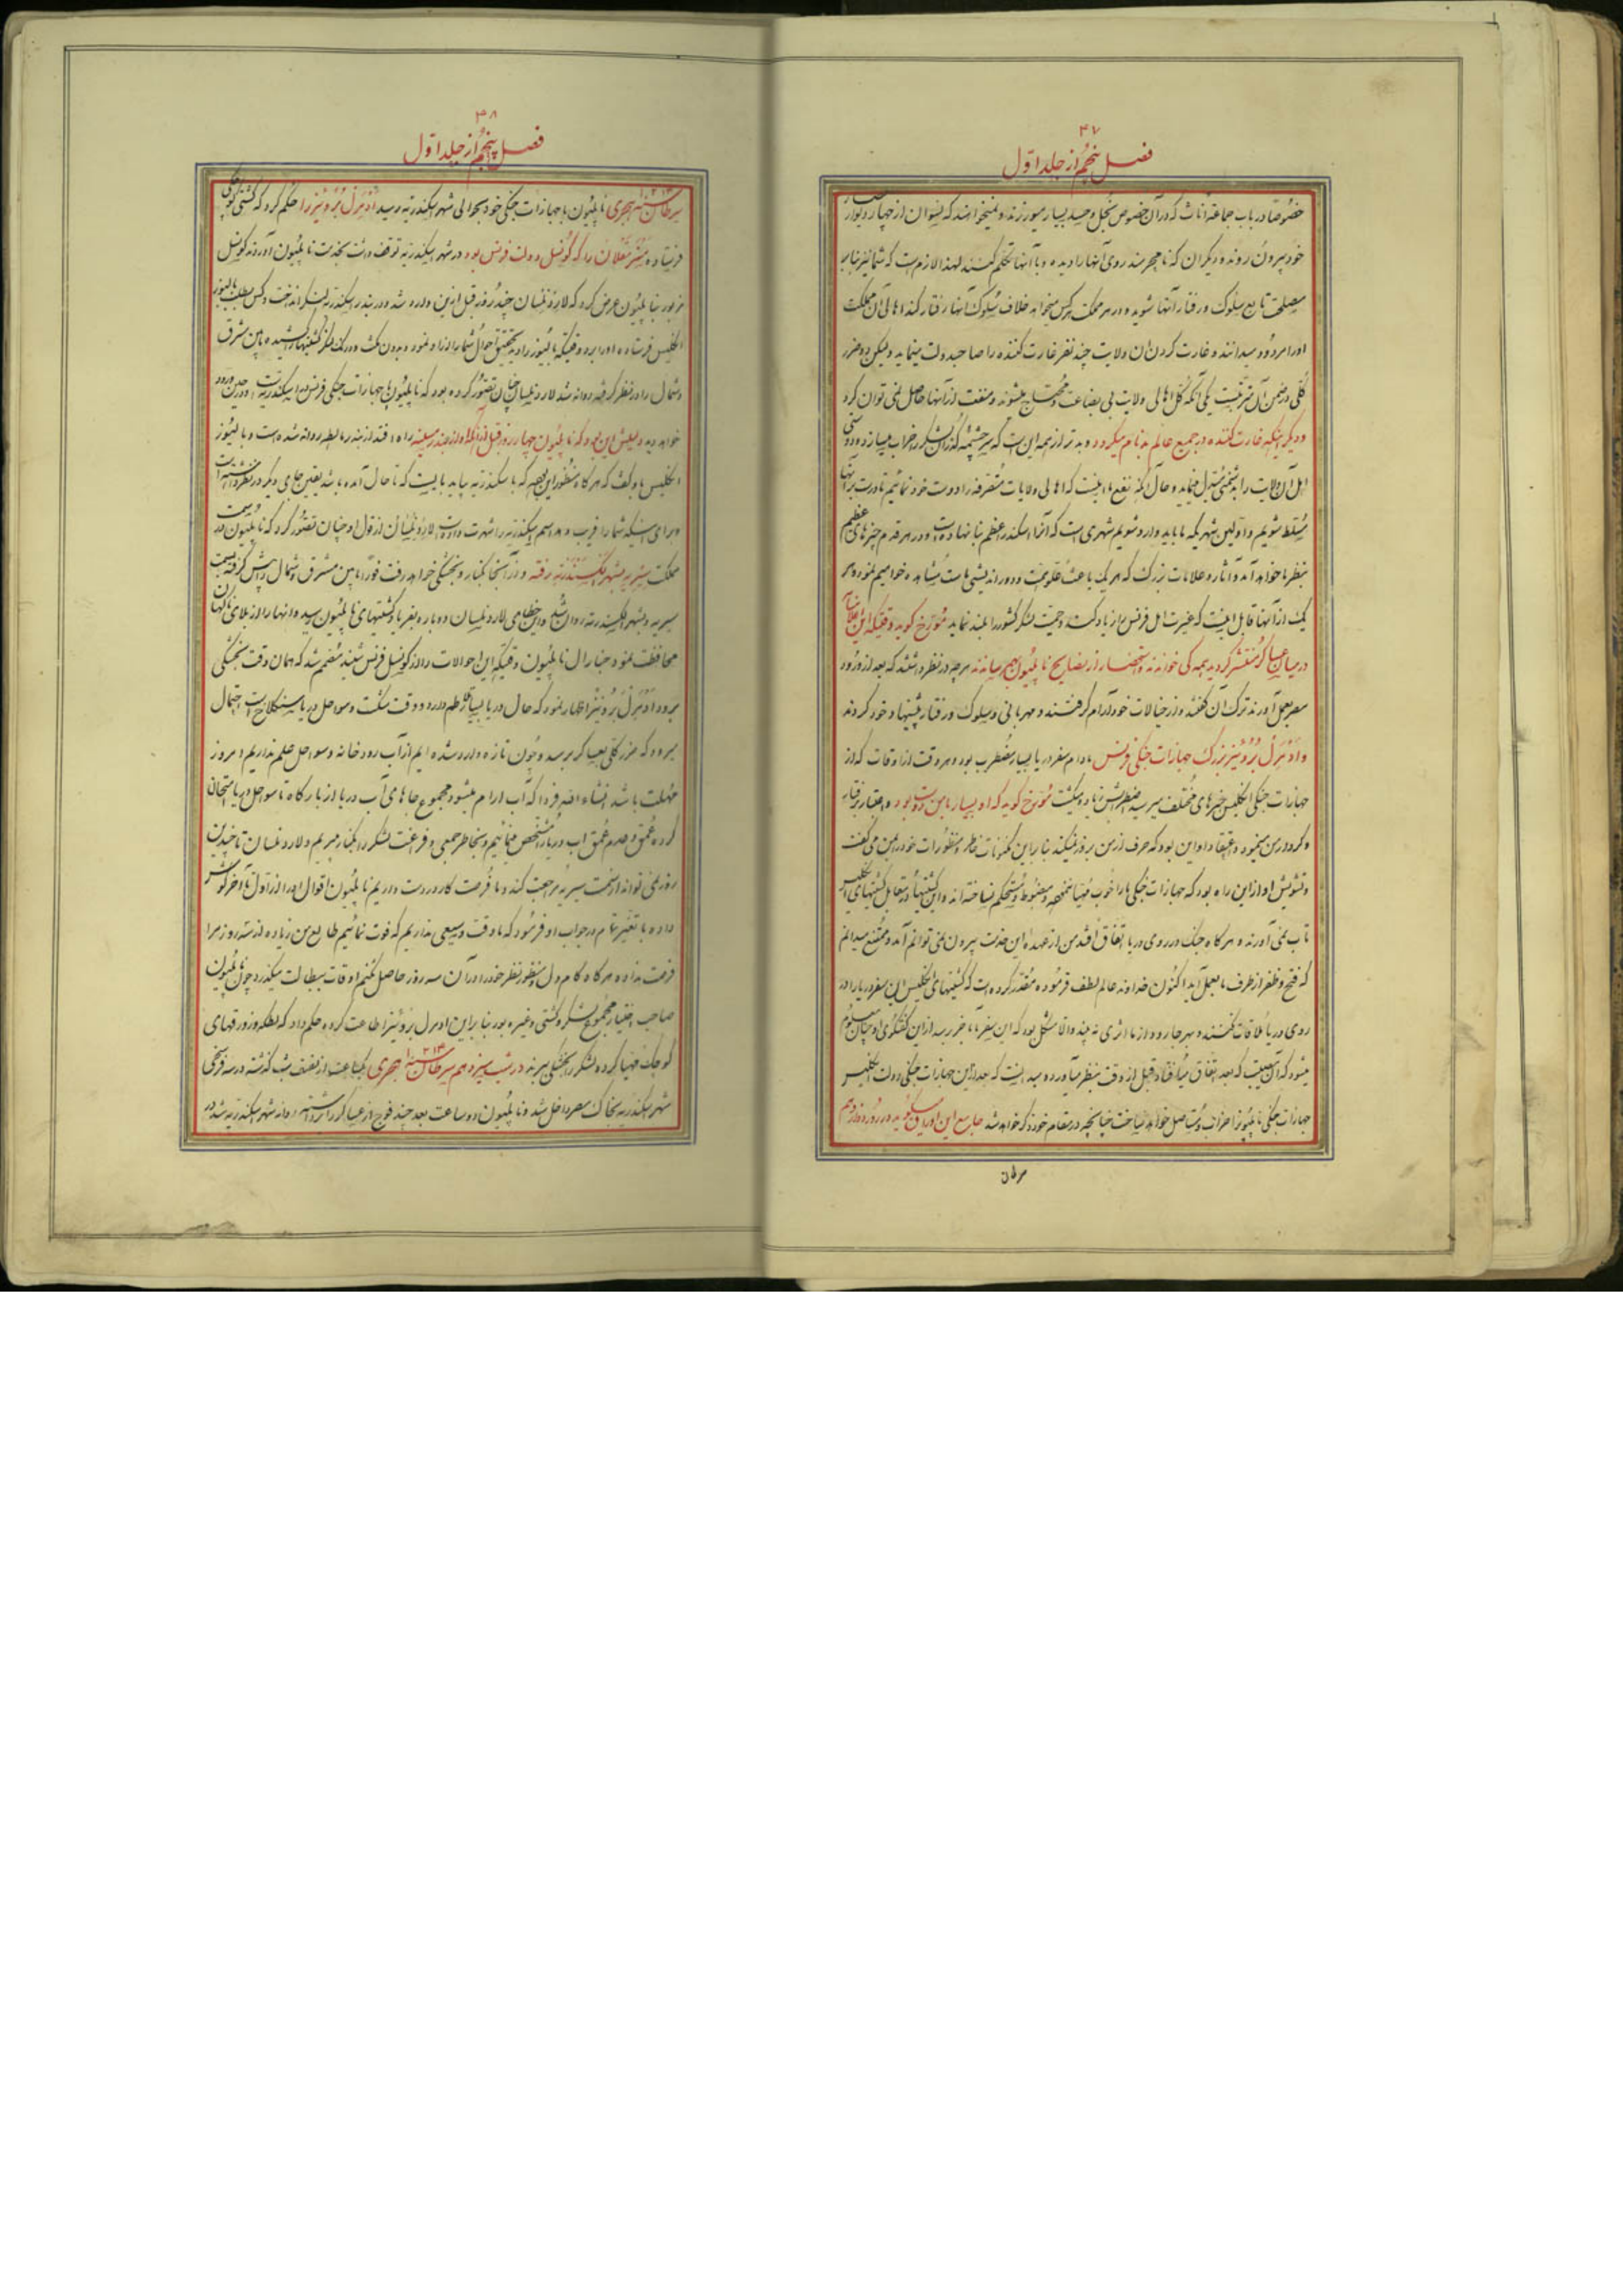 ۴۷
فصل پنجم از جلد اوّل
خصوصاً در باب جماعة اناث که در آن خصوص بخل و حسد بسیار میورزند و نمیخواهند که نسوان از چهار دیوار
خود بیرون روند و دیگران که نامحرمند روی آنها را دیده و با آنها تکلم کنند لهذا لازم است که شما نیز بنابر
مصلحت تابع سلوک و رفتار آنها شوید و در هر مملکت هر کس میخواهد خلاف سلوک آنها رفتار کند اهالی آن مملکت
او را مردود میدانند و غارت کردن ان ولایت چند نفر غارت کننده را صاحب دولت مینماید ولیکن دو ضرر
کلی در ضمن آن مترتبست یکی آنکه کل اهالی ولایت بی بضاعت و محتاج میشوند و منفعت از آنها حاصل نمی توان کرد
و دیگر اینکه غارت کننده در جمیع عالم بدنام میگردد و بدتر از همه این است که سرچشمه گذران لشکر را خراب میسازد و دوستی
اهل آن ولایت را بدشمنی مبدل مینماید و حال آنکه نفع ما اینست که اهالی ولایات متصرفه را دوست خود نمائیم تا درست بر آنها
مسلط شویم و اولین شهریکه ما باید وارد شویم شهری است که آنرا اسکندر اعظم بنا نهاده است و در هر قدم چیزهای عظیم
بنظر ما خواهد آمد و آثار و علامات بزرگ که هر یک باعث عقوبت و دور اندیشی ماست مشاهده خواهیم نمود و هر
یک از آنها قابل اینست که غیرت اهل فرنس را زیاد کند و حمیت لشکر کشور را بلند نماید مورخ گوید وقتیکه این علامات
در میان عساکر منتشر گردید همه کی خواندند و استحضار از نصایح ناپلیون بهم رسانیدند هر چه در نظر داشتند که بعد از ورود
مصر بعمل آورند ترک آن گفتند و از خیالات خود آرام گرفتند و مهربانی و سلوک و رفتار پیشنهاد خود کردند
و ادمرل بروئیز بزرگ جهازات جنگی فرنس مادام سفر دریا بسیار مضطرب بود و هر وقت از اوقات که از
جهازات جنگی انگلیس خبرهای مختلف میرسید اضطرابش زیاده میگشت مورخ گوید که او بسیار با من دوست بود و اعتبار بر گفتار
و کردار من مینمود و اعتقاد او این بود که حرف از من بروز نمیکند بنابراین مکنونات خاطر و منظورات خود را بمن می گفت
و تشویش او از این راه بود که جهازات جنگی ما را خوب مهیا ننموده و مضبوط و مستحکم نساخته اند و این کشتیها در مقابل کشتیهای انگلیس
تاب نمی آورند و هر گاه جنگ در روی دریا اتفاق افتد من از عهده این خدمت بیرون نمی توانم آمد و ممتنع میدانم
که فتح و ظفر از طرف ما بعمل آید اکنون خداوند عالم لطف فرموده مقدر کرده است که کشتیهای انگلیس این سفر دریا را در
روی دریا ملاقات نکنند و بهر جا رود از ما اثری نه بیند و الا مشکل بود که این سفر ما بآخر رسد از این گفتگوی او چنان معلوم
میشود که آن مصیبت که بعد اتفاق میافتاد قبل از وقت بنظر میآورده میدانست که بعد از این جهازات جنگی دولت انگلیس
جهازات جنگی ناپلیون را خراب و مستأصل خواهد ساخت چنانچه در مقام خود ذکر خواهد شد جامع این اوراق میگوید در روز دوازدهم
سرطان
۴۸
فصل پنجم از جلد اوّل
سرطان سنه ۱۲۱۳ هجری ناپلیون با جهازات جنگی خود بحوالی شهر اسکندریه رسید ادمرل بروئیز را حکم کرد که کشتی کوچکی
فرستاده مستر مغلان را که کونسل دولت فرنس بود در شهر اسکندریه توقف داشت بخدمت ناپلیون آوردند کونسل
مزبور بناپلیون عرض کرد که لارد نلسان چند روز قبل ازین وارد شد و در بندر اسکندریه لنگر انداخت و کس بطلب بالیوز
انگلیس فرستاده او را برد وقتیکه بالیوز را دید تحقیق احوال شما را از او نمود و بدون مکث و درنگ لنگر کشتیها را کشیده مابین شرق
و شمال را در نظر گرفته روانه شد لارد نلسان چنان تصور کرده بود که ناپلیون با جهازات جنگی فرنس در اسکندریه در حین ورود
خواهد دید دلیلش این بود که ناپلیون چهار روز قبل از آنکه او از بندر مسینه راه افتد از بندر مالطه روانه شده است و بالیوز
انگلیس باو گفت که هر گاه منظور این بود که باسکندریه بیاید بایست که تا حال آمده باشد یقین جای دیگر در نظر داشته است
و برای اینکه شما را فریب دهد اسم اسکندریه را شهرت داده است لارد نلسان از قول او چنان تصور کرد که ناپلیون در سمت
مملکت سیریه بشهر الکسندرته رفته و از آنجا بکنار و بخشکی خواهد رفت فوراً مابین مشرق و شمال را پیش گرفته بسمت
سیریه و بشهر الکسندرته روان شد و این خطای لارد نلسان دوباره بفریاد کشتیهای ناپلیون رسید و انها را از بلای ناگهان
محافظت نمود جنارال ناپلیون وقتیکه این احوالات را از کونسل فرنس شنید مصمم شد که همان وقت بخشکی
برود ادمرل بروئیز اظهار نمود که حال دریا بسیار تلاطم دارد و وقت شکست و سواحل دریا سنگلاخ است احتمال
میرود که ضرر کلی بعساکر برسد و چون تازه وارد شده ایم از آب رودخانه و سواحل علم نداریم امروز
مهلت باشد انشاءالله فردا که آب آرام میشود مجموع جاهای آب دریا را از بارگاه تا سواحل دریا امتحان
کرده عمق و عدم عمق آب دریا را مشخص مینمائیم و بخاطر جمعی و فراغت لشکر را بکنار میبریم و لارد نلسان تا چندین
روز نمی تواند از سمت سیریه مراجعت کند و ما فرصت کار در دست داریم ناپلیون اقوال او را از اول تا آخر گوش
داده با تغیر تمام در جواب او فرمود که ما وقت وسیعی نداریم که فوت نمائیم طالع من زیاده از سه روز مرا
فرصت نداده هر گاه کام دل و منظور نظر خود را در آن سه روز حاصل نکنم اوقات ببطالت میگذرد چون ناپلیون
صاحب اختیار مجموع لشکر و کشتی و غیره بود بنابراین ادمرل بروئیز اطاعت کرده حکم داد که لطکه و زورقهای
کوچک مهیا کرده لشکر را بخشکی ببرند در شب سیزدهم سرطان سنه ۱۲۱۳ هجری یکساعت از نصف شب گذشته در سه فرسخی
شهر اسکندریه بخاک مصر داخل شد و ناپلیون دو ساعت بعد چند فوج از عساکر را برداشته روانه شهر اسکندریه شد در